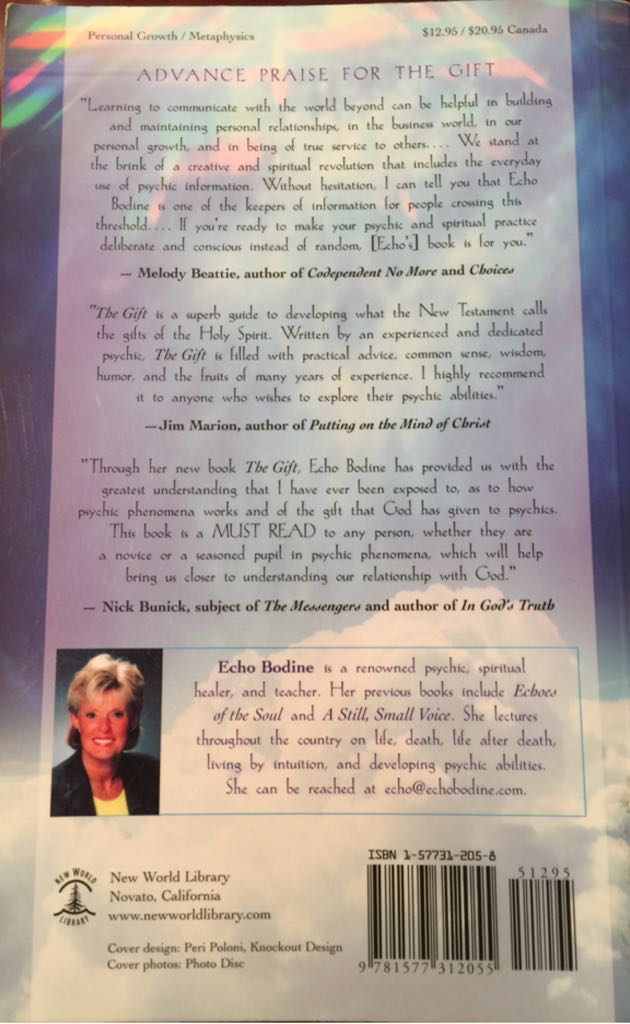 Personal Growth / Metaphysics
$12.95 / $20.95 Canada
ADVANCE PRAISE FOR THE GIFT
"Learning to communicate with the world beyond can be helpful in building
and maintaining personal relationships, in the business world, in our
personal growth, and in being of true service to others.... We stand at
the brink of a creative and spiritual revolution that includes the everyday
use of psychic information. Without hesitation, I can tell you that Echo
Bodine is one of the keepers of information for people crossing this
threshold.... If you're ready to make your psychic and spiritual practice
deliberate and conscious instead of random, [Echo's] book is for you."
— Melody Beattie, author of Codependent No More and Choices
"The Gift is a superb guide to developing what the New Testament calls
the gifts of the Holy Spirit. Written by an experienced and dedicated
psychic, The Gift is filled with practical advice, common sense, wisdom,
humor, and the fruits of many years of experience. I highly recommend
it to anyone who wishes to explore their psychic abilities."
—Jim Marion, author of Putting on the Mind of Christ
"Through her new book The Gift, Echo Bodine has provided us with the
greatest understanding that I have ever been exposed to, as to how
psychic phenomena works and of the gift that God has given to psychics.
This book is a MUST READ to any person, whether they are
a novice or a seasoned pupil in psychic phenomena, which will help
bring us closer to understanding our relationship with God."
— Nick Bunick, subject of The Messengers and author of In God's Truth
Echo Bodine is a renowned psychic, spiritual
healer, and teacher. Her previous books include Echoes
of the Soul and A Still, Small Voice. She lectures
throughout the country on life, death, life after death,
living by intuition, and developing psychic abilities.
She can be reached at echo@echobodine.com.
NEW WORLD
LIBRARY
New World Library
Novato, California
www.newworldlibrary.com
Cover design: Peri Poloni, Knockout Design
Cover photos: Photo Disc
ISBN 1-57731-205-8
51295
9 781577 312055